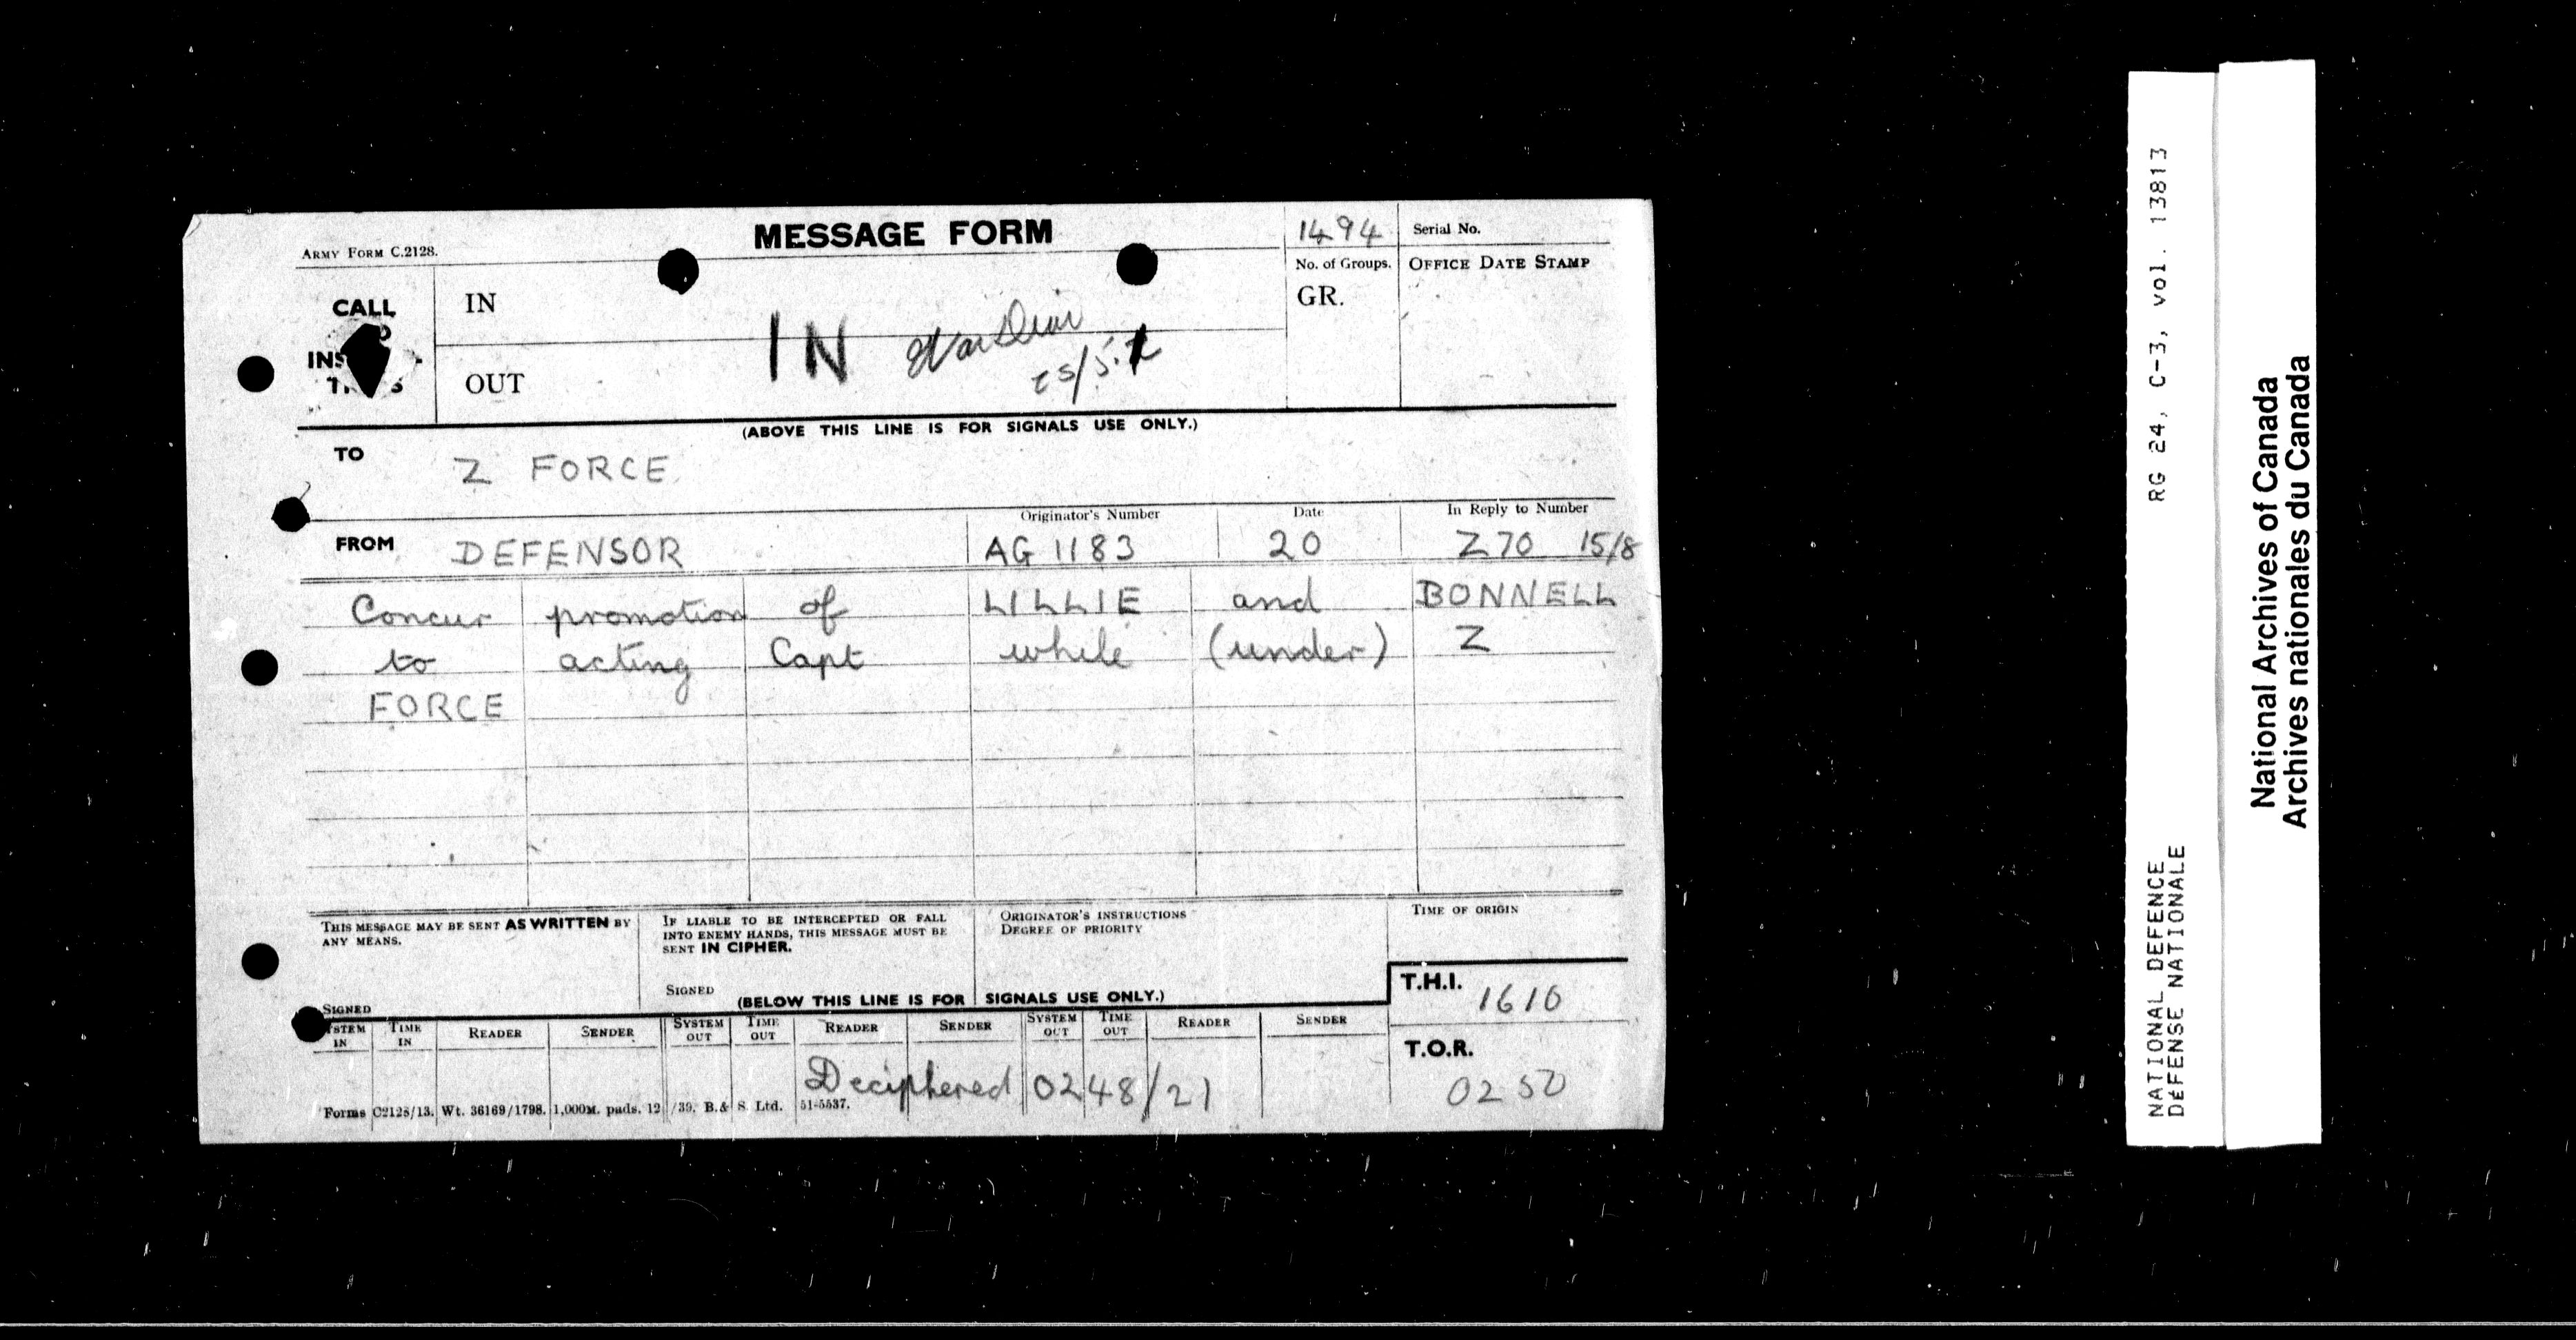 MESSAGE FORM
ARMY FORM C.2128.
1494
Serial No.
No. of Groups.
OFFICE DATE STAMP
CALL
IN
GR.
IN
OUT
(ABOVE THIS LINE IS FOR SIGNALS USE ONLY.)
TO Z FORCE
Originator's Number Date In Reply to Number
FROM DEFENSOR AG 1183 20 Z70 15/8
Concur promotion of LILLIE and BONNELL
to acting Capt while (under) Z
FORCE
THIS MESSAGE MAY BE SENT AS WRITTEN BY
ANY MEANS.
SIGNED
IF LIABLE TO BE INTERCEPTED OR FALL
INTO ENEMY HANDS, THIS MESSAGE MUST BE
SENT IN CIPHER.
SIGNED
ORIGINATOR'S INSTRUCTIONS
DEGREE OF PRIORITY
TIME OF ORIGIN
(BELOW THIS LINE IS FOR SIGNALS USE ONLY.)
T.H.I. 1610
SYSTEM IN TIME IN READER SENDER SYSTEM OUT TIME OUT READER SENDER SYSTEM OUT TIME OUT READER SENDER
T.O.R.
0250
Deciphered 0248/21
Forms C2128/13. Wt. 36169/1798. 1,000M. pads. 12/39. B.& S. Ltd. 51-5537.
RG 24, C-3, vol. 13813
NATIONAL DEFENCE
DEFENSE NATIONALE
National Archives of Canada
Archives nationales du Canada